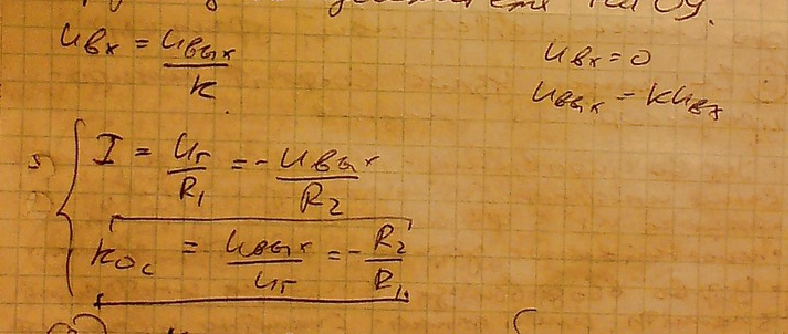 на ОУ.
Uвх = Uвых / K
Uвх = 0
Uвых = KUвх
I = Uг / R1 = - Uвых / R2
Kос = Uвых / Uг = - R2 / R1